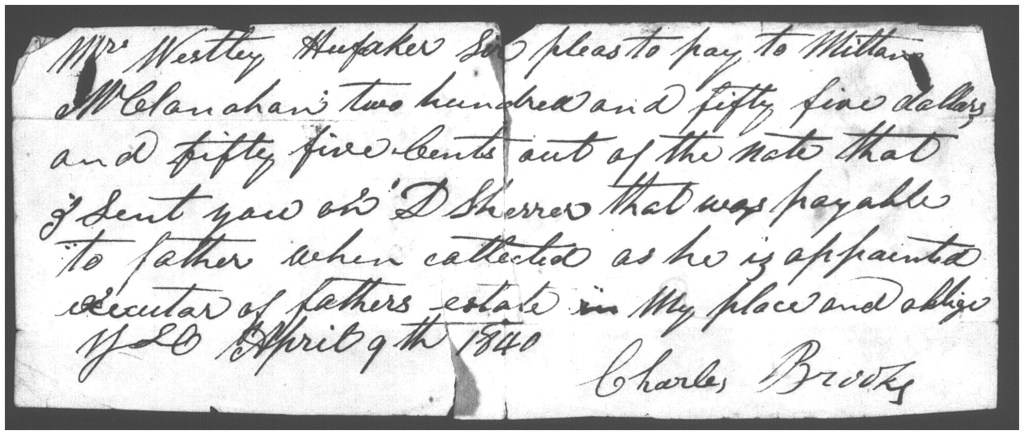 Mrs Westley Hufaker Sir pleas to pay to Milton
McClanahan two hundred and fifty five dollars
and fifty five Cents out of the note that
I Sent you on D Sherrer that was payable
to father when collected as he is appointed
executor of fathers estate in My place and oblige
April 9th 1840
Charles Brooks